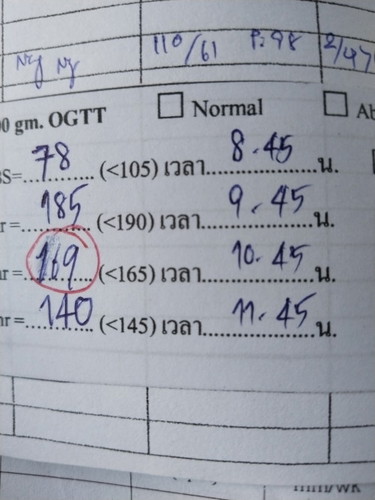 110/61 P: 98 2/47
00 gm. OGTT ☐ Normal ☐ Ab
BS=........78........ (<105) เวลา........8.45........น.
r=........185........ (<190) เวลา........9.45........น.
hr=........169........ (<165) เวลา........10.45........น.
hr=........140........ (<145) เวลา........11.45........น.
mm/wk